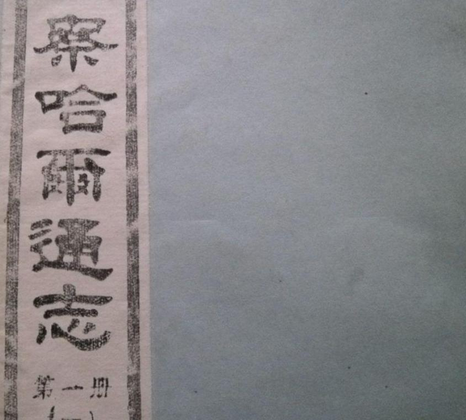 察哈爾通志
第一册
(一)